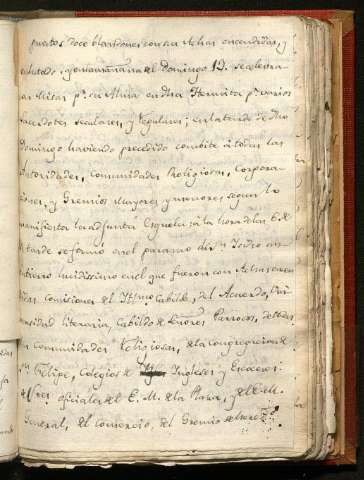 puestos doce blandones con sus Achas encendidas, y
enlutado, y en la mañana del Domingo 13. se celebra-
ron Misas pr. su Alma en dha Hermita pr. varios
sacerdotes seculares, y regulares; en la tarde de dho
Domingo haviendo precedido combite á todas las
Autoridades, Comunidades Religiosas, Corpora-
ciones, y Gremios mayores y menores segun lo
manifiesta la adjunta Esquela; á la hora de las 6 de
la tarde se formó en el paramo dho y Todro un
entierro lucidissimo en el que fueron con Achas
Comisiones del Ittmo. Cabildo, del Acuerdo, Uni-
versidad literaria, Cabildo de Señores Parrocos, de todas
las Comunidades Religiosas, de la congregacion de
Sn. Felipe, Colegios de Ingleses y Escoces:
Sres. oficiales del E. M. de la Plaza, y del
General, del Comercio, del Gremio de